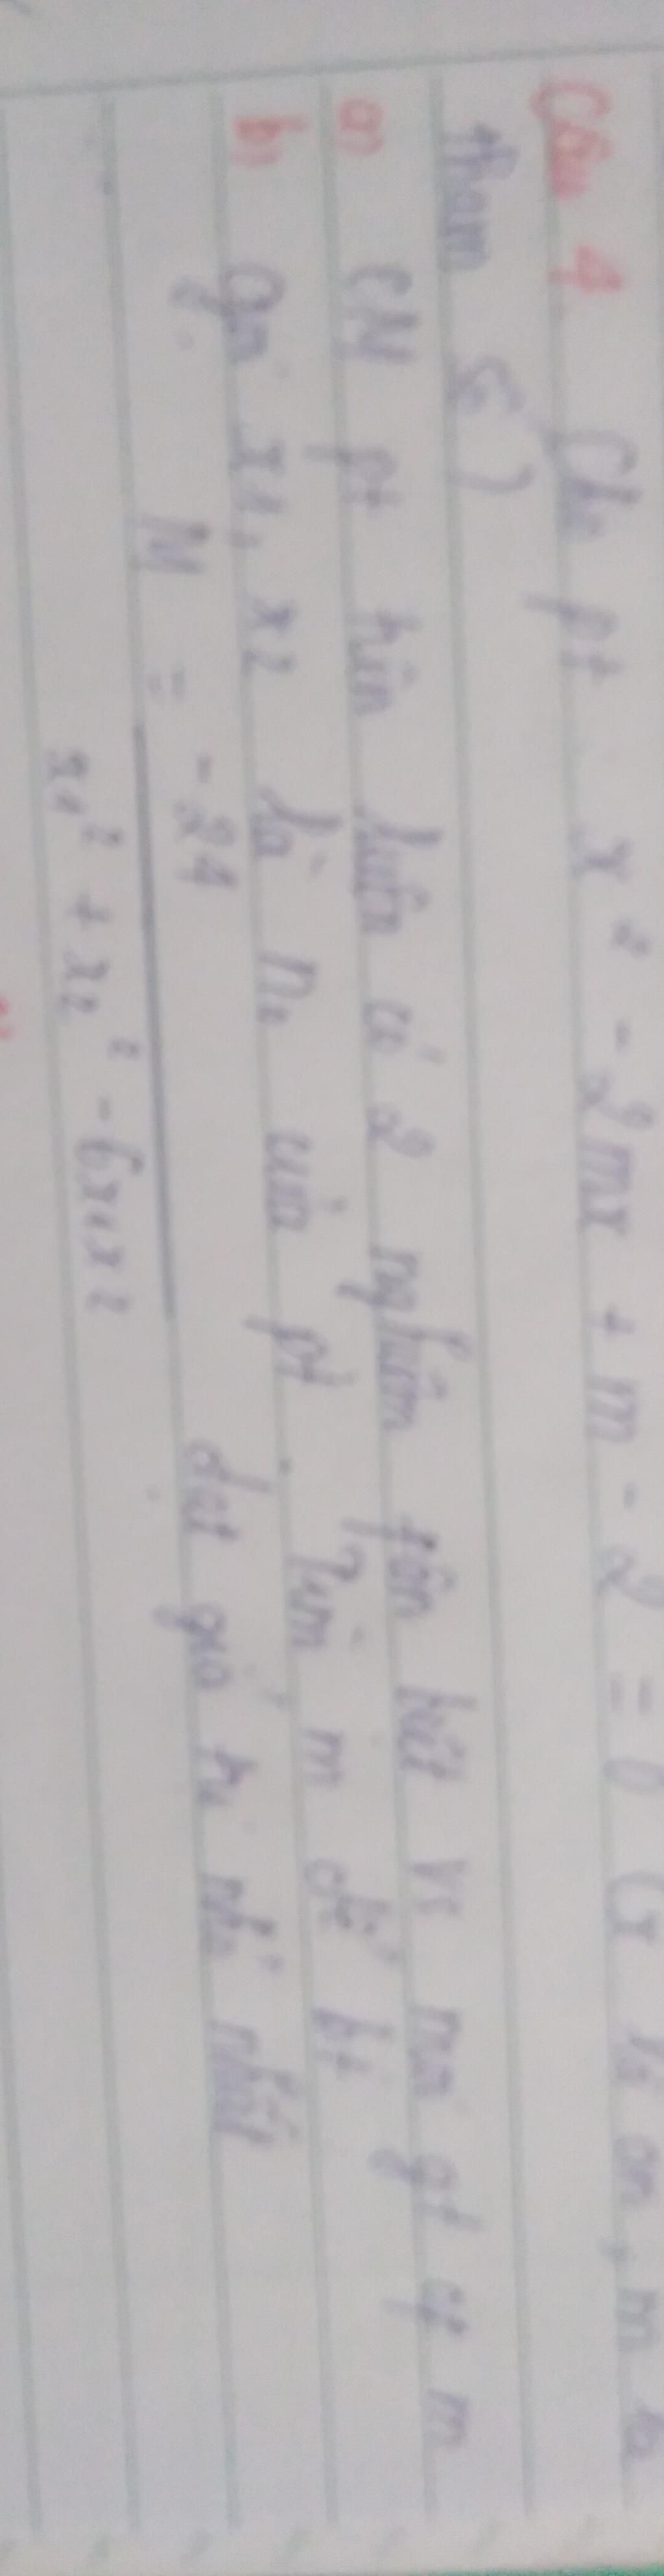 Câu 4. Cho pt x² - 2mx + m - 2 = 0 (x là ẩn, m là
tham số)
a) CM pt trên luôn có 2 nghiệm fân biệt vs mọi gt của m
b) Gọi x1, x2 là no của pt. Tìm m để bt
M = -24 / x1² + x2² - 6x1x2 đạt giá trị nhỏ nhất